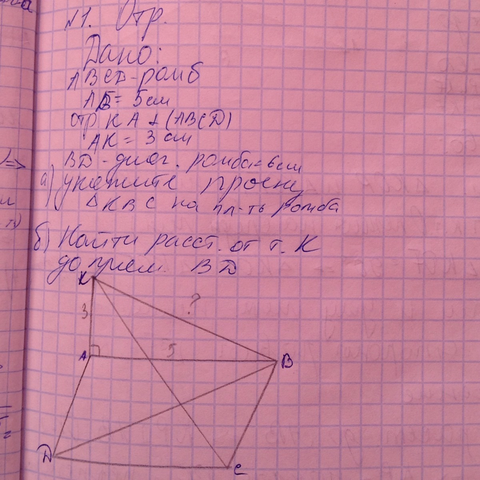 №1. Отр.
Дано:
ABCD-ромб
AB=5см
отр KA ⊥ (ABCD)
AK = 3 см
BD-диаг. ромба=6см
а) укажите проекц
ΔKBC на пл-ть ромба
б) Найти расст. от т. K
до прям. BD
K
3
?
A
5
B
D
C